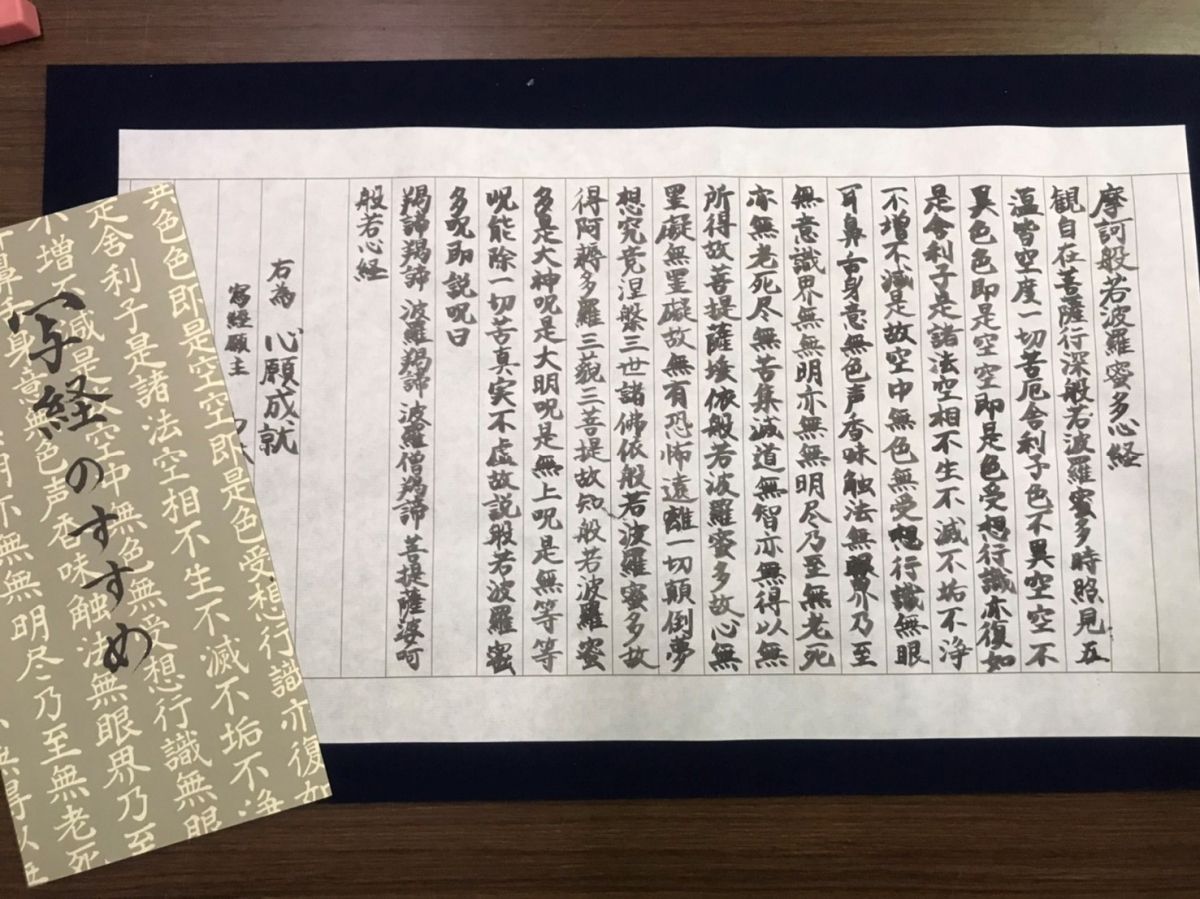 摩訶般若波羅蜜多心経
観自在菩薩行深般若波羅蜜多時照見五
薀皆空度一切苦厄舎利子色不異空空不
異色色即是空空即是色受想行識亦復如
是舎利子是諸法空相不生不滅不垢不浄
不増不減是故空中無色無受想行識無眼
耳鼻舌身意無色声香味触法無眼界乃至
無意識界無無明亦無無明尽乃至無老死
亦無老死尽無苦集滅道無智亦無得以無
所得故菩提薩埵依般若波羅蜜多故心無
罣礙無罣礙故無有恐怖遠離一切顛倒夢
想究竟涅槃三世諸佛依般若波羅蜜多故
得阿耨多羅三藐三菩提故知般若波羅蜜
多是大神呪是大明呪是無上呪是無等等
呪能除一切苦真実不虚故説般若波羅蜜
多呪即説呪曰
羯諦羯諦 波羅羯諦 波羅僧羯諦 菩提薩婆呵
般若心経
右為 心願成就
寫経願主
写経のすすめ
異色色即是空空即是色受想行識亦復如
是舎利子是諸法空相不生不滅不垢不浄
不増不減是空中無色無受想行識無眼
鼻舌身意無色声香味触法無眼界乃至
明亦無無明尽乃至無老死
無得以無